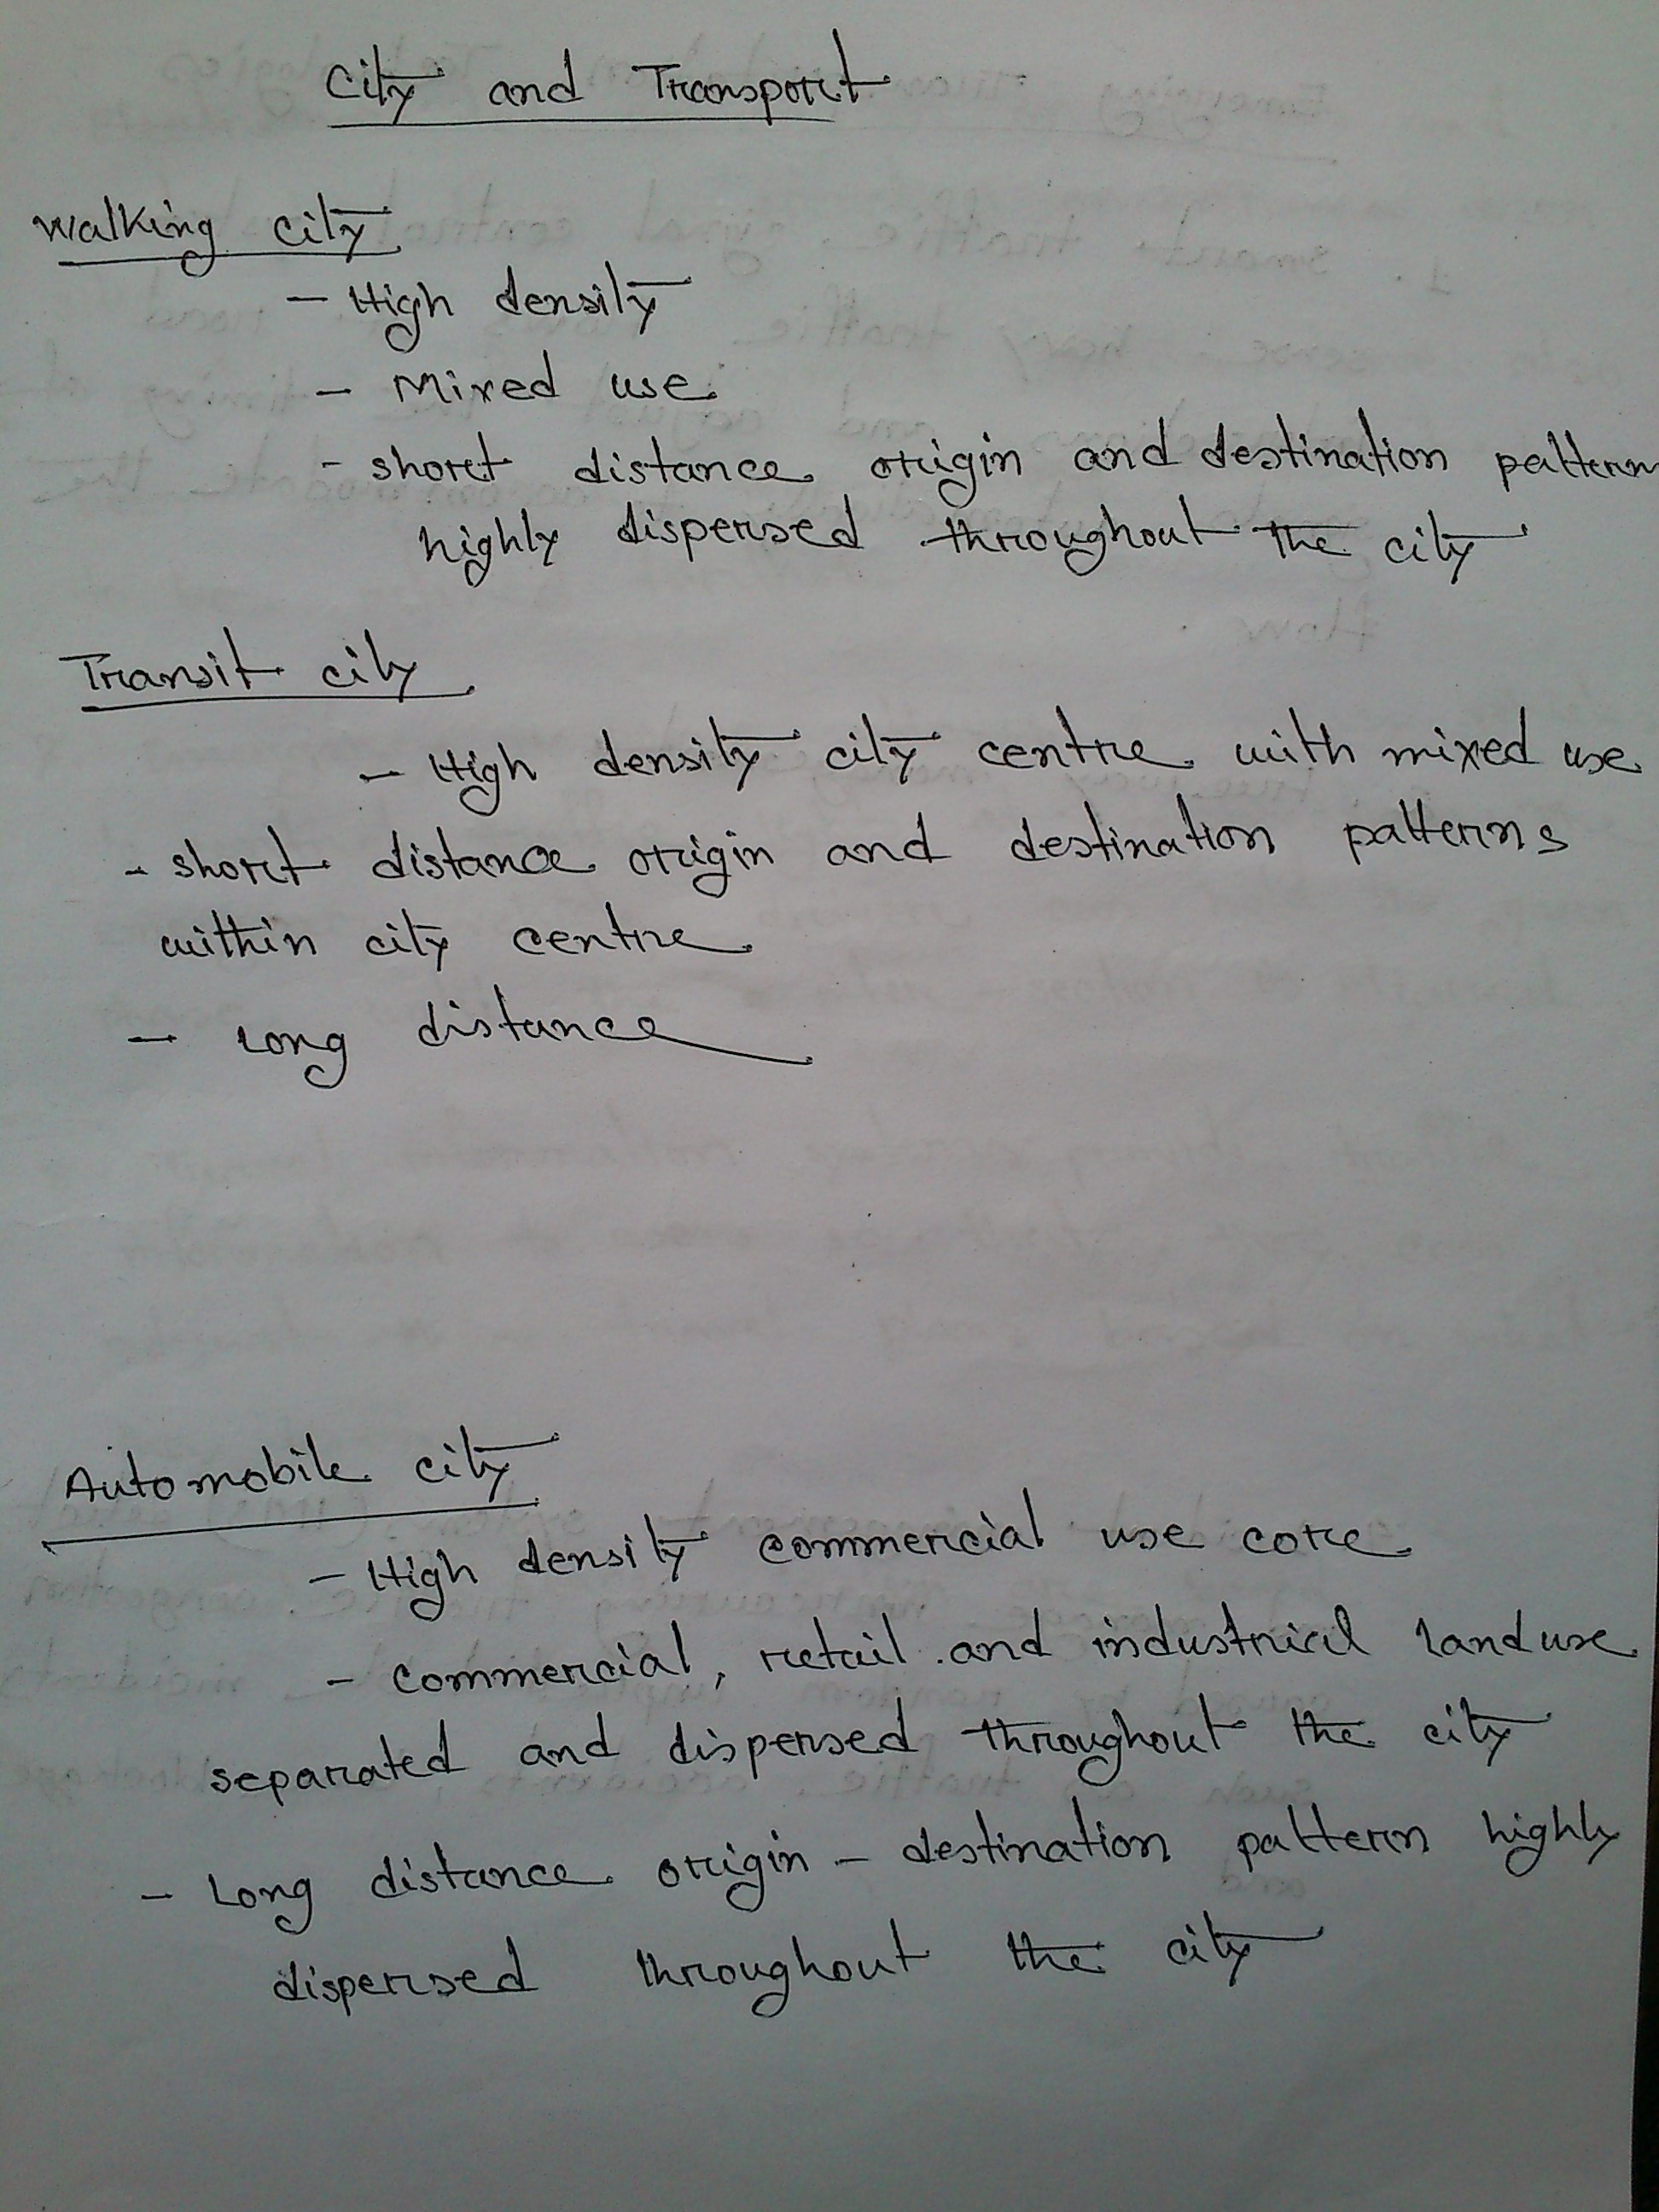 City and Transport
Walking city
- High density
- Mixed use
- short distance origin and destination pattern
highly dispersed throughout the city
Transit city
- High density city centre with mixed use
- short distance origin and destination patterns
within city centre
- Long distance
Automobile city
- High density commercial use core
- commercial, retail and industrial landuse
separated and dispersed throughout the city
- Long distance origin - destination pattern highly
dispersed throughout the city